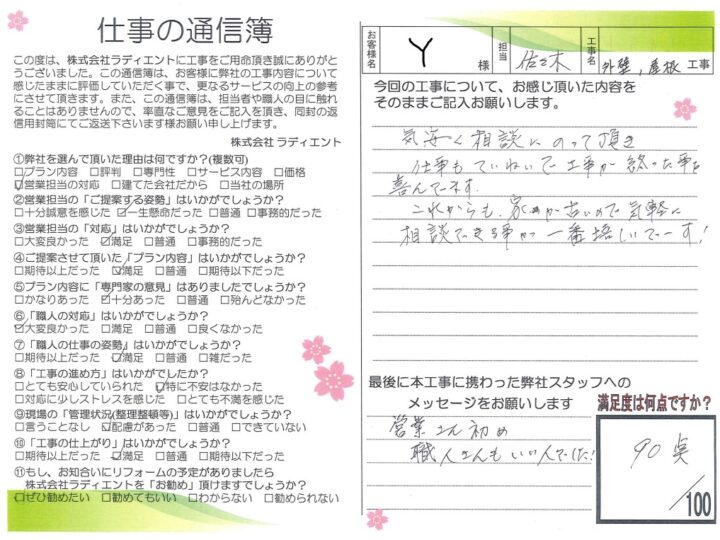 仕事の通信簿
この度は、株式会社ラディエントに工事をご用命頂き誠にありがと
うございました。この通信簿は、お客様に弊社の工事内容について
感じたままに評価していただく事で、更なるサービスの向上の参考
にさせて頂きます。また、この通信簿は、担当者や職人の目に触れ
ることはありませんので、率直なご意見をご記入を頂き、同封の返
信用封筒にてご返送下さいます様お願い申し上げます。
株式会社 ラディエント
①弊社を選んで頂いた理由は何ですか?(複数可)
□プラン内容 □評判 □専門性 □サービス内容 □価格
☑営業担当の対応 □建てた会社だから □当社の場所
②営業担当の「ご提案する姿勢」はいかがでしょうか?
□十分誠意を感じた ☑一生懸命だった □普通 □事務的だった
③営業担当の「対応」はいかがでしょうか?
□大変良かった ☑満足 □普通 □事務的だった
④ご提案させて頂いた「プラン内容」はいかがでしょうか?
□期待以上だった ☑満足 □普通 □期待以下だった
⑤プラン内容に「専門家の意見」はありましたでしょうか?
□かなりあった ☑十分あった □普通 □殆んどなかった
⑥「職人の対応」はいかがでしょうか?
☑大変良かった □満足 □普通 □良くなかった
⑦「職人の仕事の姿勢」はいかがでしょうか?
□期待以上だった ☑満足 □普通 □雑だった
⑧「工事の進め方」はいかがでしたか?
□とても安心していられた ☑特に不安はなかった
□対応に少しストレスを感じた □とても不満を感じた
⑨現場の「管理状況(整理整頓等)」はいかがでしょうか?
□言うことなし ☑配慮があった □普通 □できていない
⑩「工事の仕上がり」はいかがでしょうか?
□期待以上だった ☑満足 □普通 □期待以下だった
⑪もし、お知合いにリフォームの予定がありましたら
株式会社ラディエントを「お勧め」頂けますでしょうか?
☑ぜひ勧めたい □勧めてもいい □わからない □勧められない
お客様名 Y 様 担当 佐々木 工事名 外壁,屋根 工事
今回の工事について、お感じ頂いた内容を
そのままご記入お願いします。
気安く相談にのって頂き
仕事もていねいで工事が終った事を
喜んでます.
これからも、家めが古いので気軽に
相談できる事が一番嬉しいでーす!
最後に本工事に携わった弊社スタッフへの
メッセージをお願いします
営業さん初め
職人さんもいい人でした!
満足度は何点ですか?
90点
/100